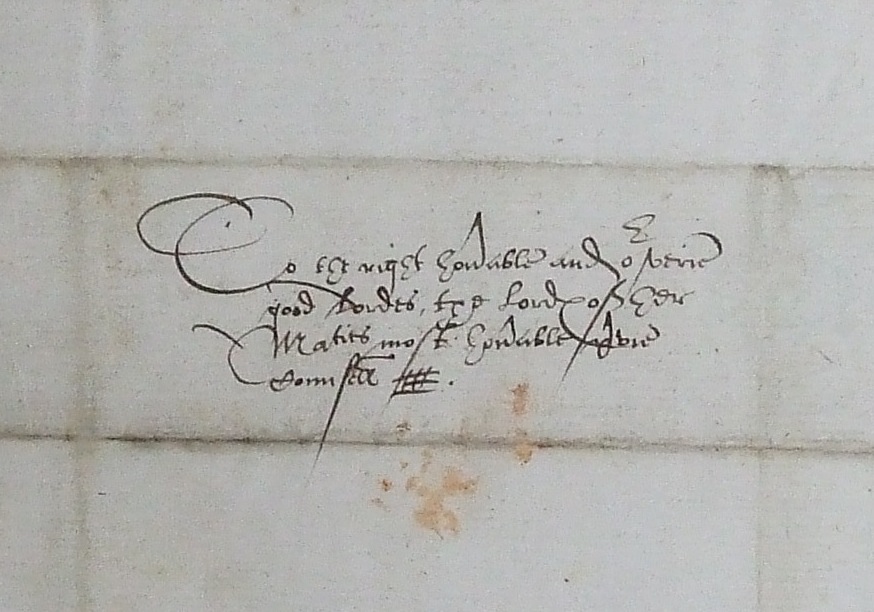 To the right honorable and or verie
good Lordes, the Lordes of her
Maties most honorable privie
Counsell